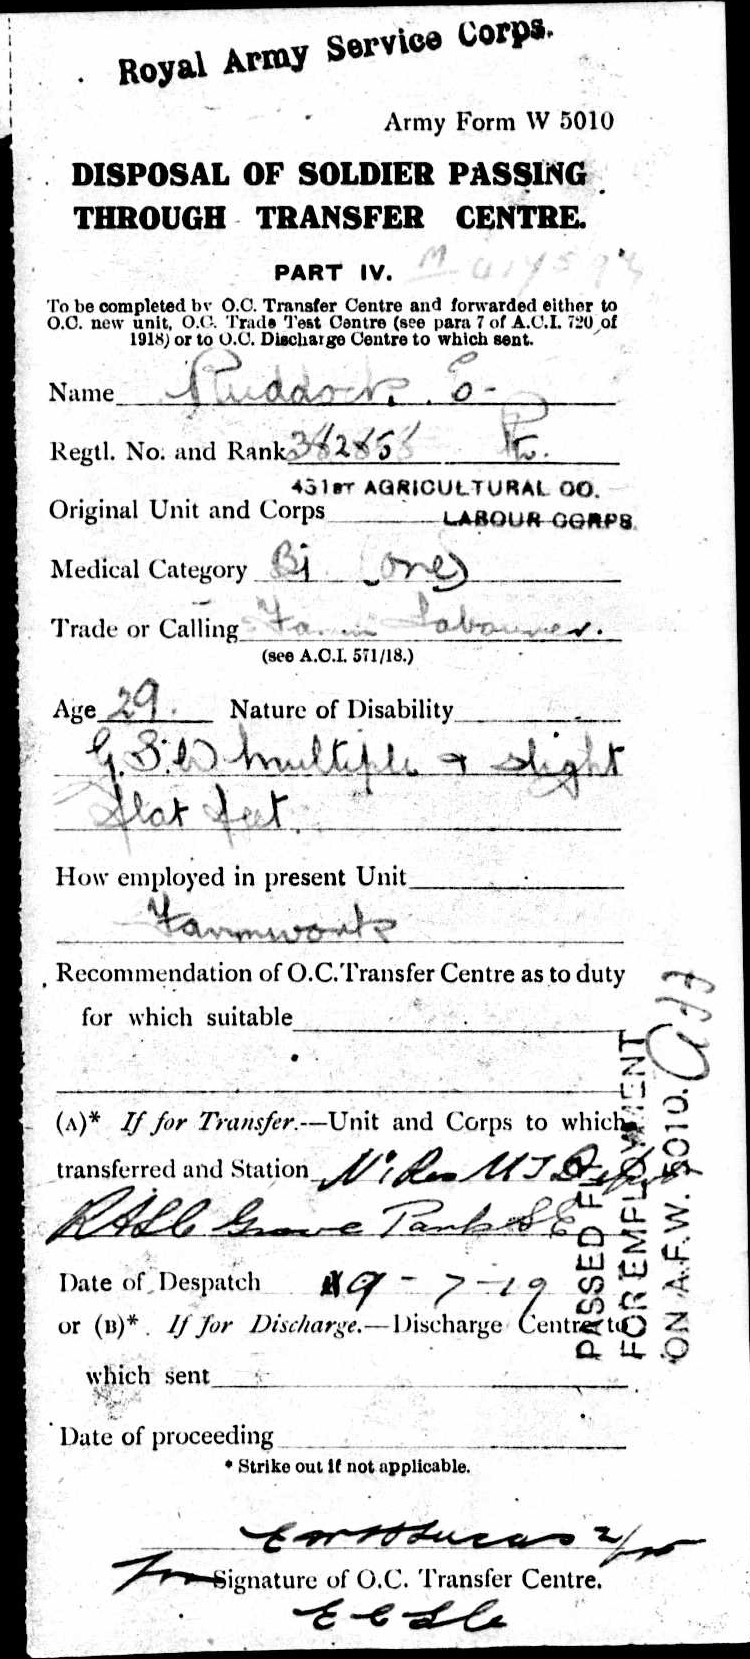 Royal Army Service Corps.
Army Form W 5010
DISPOSAL OF SOLDIER PASSING
THROUGH TRANSFER CENTRE.
PART IV.
To be completed by O.C. Transfer Centre and forwarded either to
O.C. new unit, O.C. Trade Test Centre (see para 7 of A.C.I. 720 of
1918) or to O.C. Discharge Centre to which sent.
Name Ruddock. E-
Regtl. No. and Rank 382858 Pte.
431ST AGRICULTURAL CO.
Original Unit and Corps LABOUR CORPS.
Medical Category Bi (one)
Trade or Calling Farm Labourer.
(see A.C.I. 571/18.)
Age 29. Nature of Disability
G.S.W multiple & slight
flat feet.
How employed in present Unit
Farmwork
Recommendation of O.C. Transfer Centre as to duty
for which suitable
(A)* If for Transfer.—Unit and Corps to which
transferred and Station No 1 Res M T Depot
RASC Grove Park S E
Date of Despatch 19-7-19
or (B)*. If for Discharge.—Discharge Centre to
which sent
Date of proceeding
* Strike out if not applicable.
Lucas
for Signature of O.C. Transfer Centre.
PASSED FIT
FOR EMPLOYMENT
ON A.F.W. 5010.